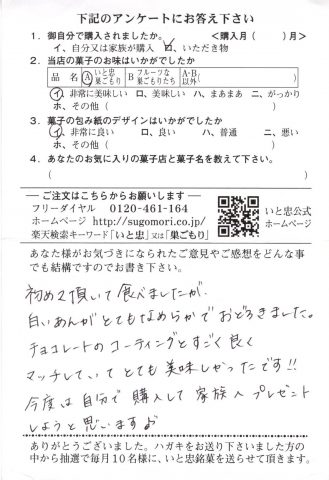 下記のアンケートにお答え下さい
1．御自分で購入されましたか。 ＜購入月（　　）月＞
イ、自分又は家族が購入　ロ、いただき物
2．当店の菓子のお味はいかがでしたか
品　名　A いと忠 巣ごもり　B フルーツな 巣ごもりたち　A・B 以外（　　）
イ、非常に美味しい　ロ、美味しい　ハ、まあまあ　ニ、がっかり
ホ、その他（　　）
3．菓子の包み紙のデザインはいかがでしたか
イ、非常に良い　ロ、良い　ハ、普通　ニ、悪い
ホ、その他（　　）
4．あなたのお気に入りの菓子店と菓子名を教えて下さい。
（　　）
― ご注文はこちらからお願いします ―
フリーダイヤル　0120-461-164
ホームページ http://sugomori.co.jp/
楽天検索キーワード「いと忠」又は「巣ごもり」
いと忠公式
ホームページ
あなた様がお気づきになられたご意見やご感想をどんな事
でも結構ですのでお書き下さい。
初めて頂いて食べましたが、
白いあんがとてもなめらかでおどろきました。
チョコレートのコーティングとすごく良く
マッチしていてとても美味しかったです!!
今度は自分で購入して家族へプレゼント
しようと思います
ありがとうございました。ハガキをお送り下さいました方の
中から抽選で毎月10名様に、いと忠銘菓を送らせて頂きます。